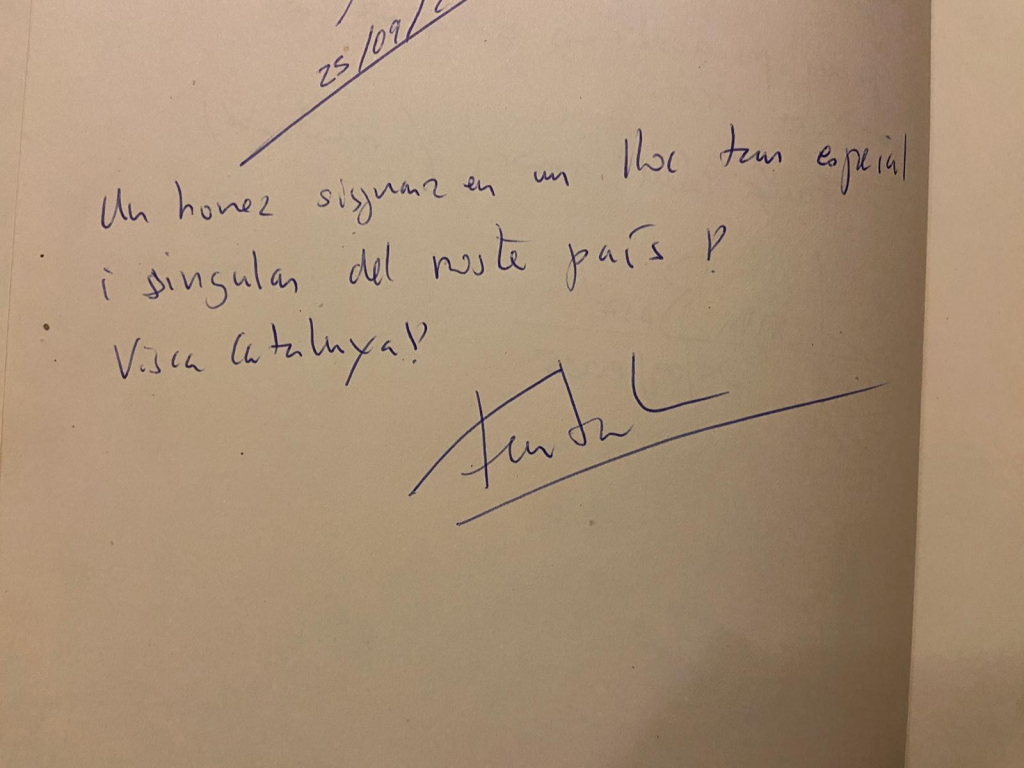 25/09/2
Un honor sisgnar en un lloc tan especial
i singular del noste país!
Visca Catalunya!